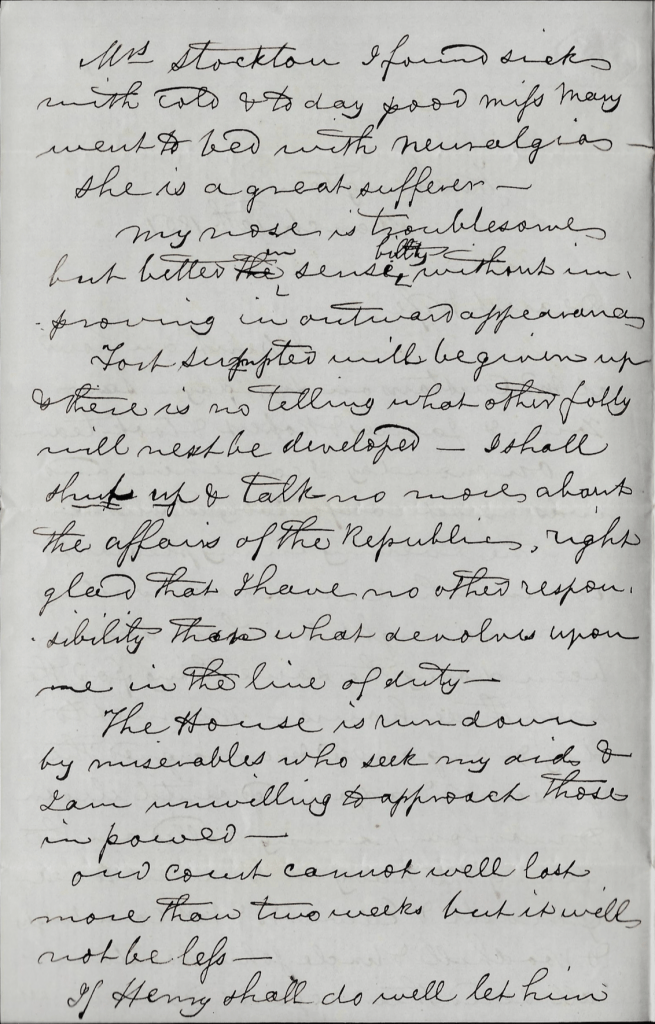 Mrs Stockton I found sick
with cold & to day poor miss Mary
went to bed with neuralgia —
she is a great sufferer —
my nose is troublesome
but better the in sensibility without im-
proving in outward appearance
Fort Sumpter will be given up
& there is no telling what other folly
will next be developed — I shall
shut up & talk no more about
the affairs of the Republic, right
glad that I have no other respon-
sibility than what devolves upon
me in the line of duty —
The House is run down
by miserables who seek my aid &
I am unwilling to approach those
in power —
our court cannot well last
more than two weeks but it will
not be less —
If Henry shall do well let him